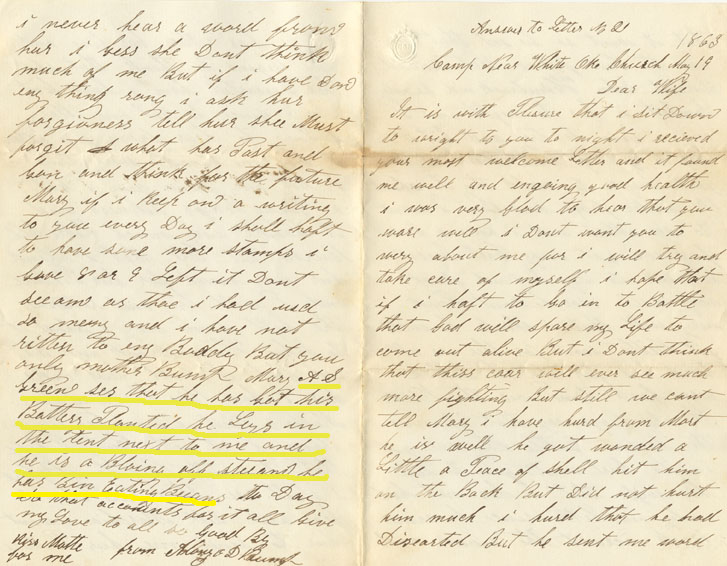 i never hear a word from
hur i bess she Dont think
much of me But if i have Don
eny think rong i ask hur
forgivness tell hur shee Must
forgit what has Past and
Gon and think for the future
Mary if i keep on a writing
to you every Day i shall haft
to have some more stamps i
have 8 or 9 Left it Dont
seeam as thoe i had used
so meny and i have not
ritten to eny Boddey But you
only mother Bump Mary A D
Green ses that he has got his
Battery Planted he Leys in
the tent next to me and
he is a Bloing off steeam he
has Bin Eating Beans to Day
So that accounts for it all Give
my Love to all so Good By
Kiss Matte from Alonzo D Bump
for me
Answer to Letter No 21
1863
Camp Near White Oke Church May 19
Dear Wife
It is with Plesure that i sit Down
to wright to you to night i recieved
your most welcome Letter and it found
me well and engoing good health
i was very Glad to hear that you
ware well i Dont want you to
wery about me for i will try and
take care of myself i hope that
if i haft to Go in to Battle
that God will spare my Life to
come out alive But i Dont think
that thiss coar will ever see much
more fighting But still we cant
tell Mary i have hurd from Mort
he is well he got wonded a
Little a Peace of shell hit him
on the Back But Did not hurt
him much i hurd that he had
Discarted But he sent me word